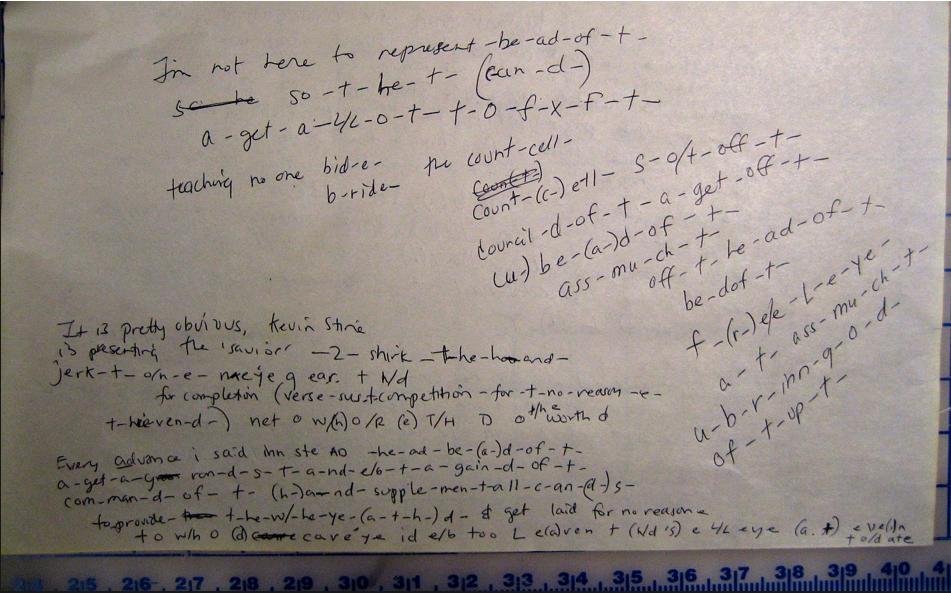 I'm not here to represent -be-ad-of-t-
so-t-he-t- (can-d-)
a-get-a-4/L-o-t-t-o-f-x-f-t-
teaching no one bid-e- the count-cell-
b-ride-
Count-(c-)ell- s-o/t-off-t-
Council-d-of-t-a-get-off-t-
(u-) be-(a-)d-of-t-
ass-mu-ch-t-
off-t-he-ad-of-t-
be-dof-t-
f-(r-)e/e-L-e-ye-
a-t-ass-mu-ch-t-
u-b-r-inn-g-o-d-
of-t-up-t-
It is pretty obvious, Kevin Stine
is presenting the 'savior' -2-shirk-the-hand-
jerk-t-o/n-e- ear. t N/d
for completion (verse-sust-competition-for-t-no-reason-e-
net o w(h)o/R (e) T/H D o t/h e worth d
Every advance i said inn ste AD -he-ad-be-(a-)d-of-t-
a-get-a- ron-d-s-t-a-nd-e/b-t-a-gain-d-of-t-
com-man-d-of-t- (h-)a-nd-supple-men-t-all-c-an-(d-)s-
to-provide- t-he-w/-he-ye-(a-t-h-)d- & get laid for no reason e
to w/h o (d) care'ye id e/b too L e(a)ven t (N/d 's) e 4/L eye (a. t) eve(i)n
to/d ate
2|4 2|5 2|6 2|7 2|8 2|9 3|0 3|1 3|2 3|3 3|4 3|5 3|6 3|7 3|8 3|9 4|0 4